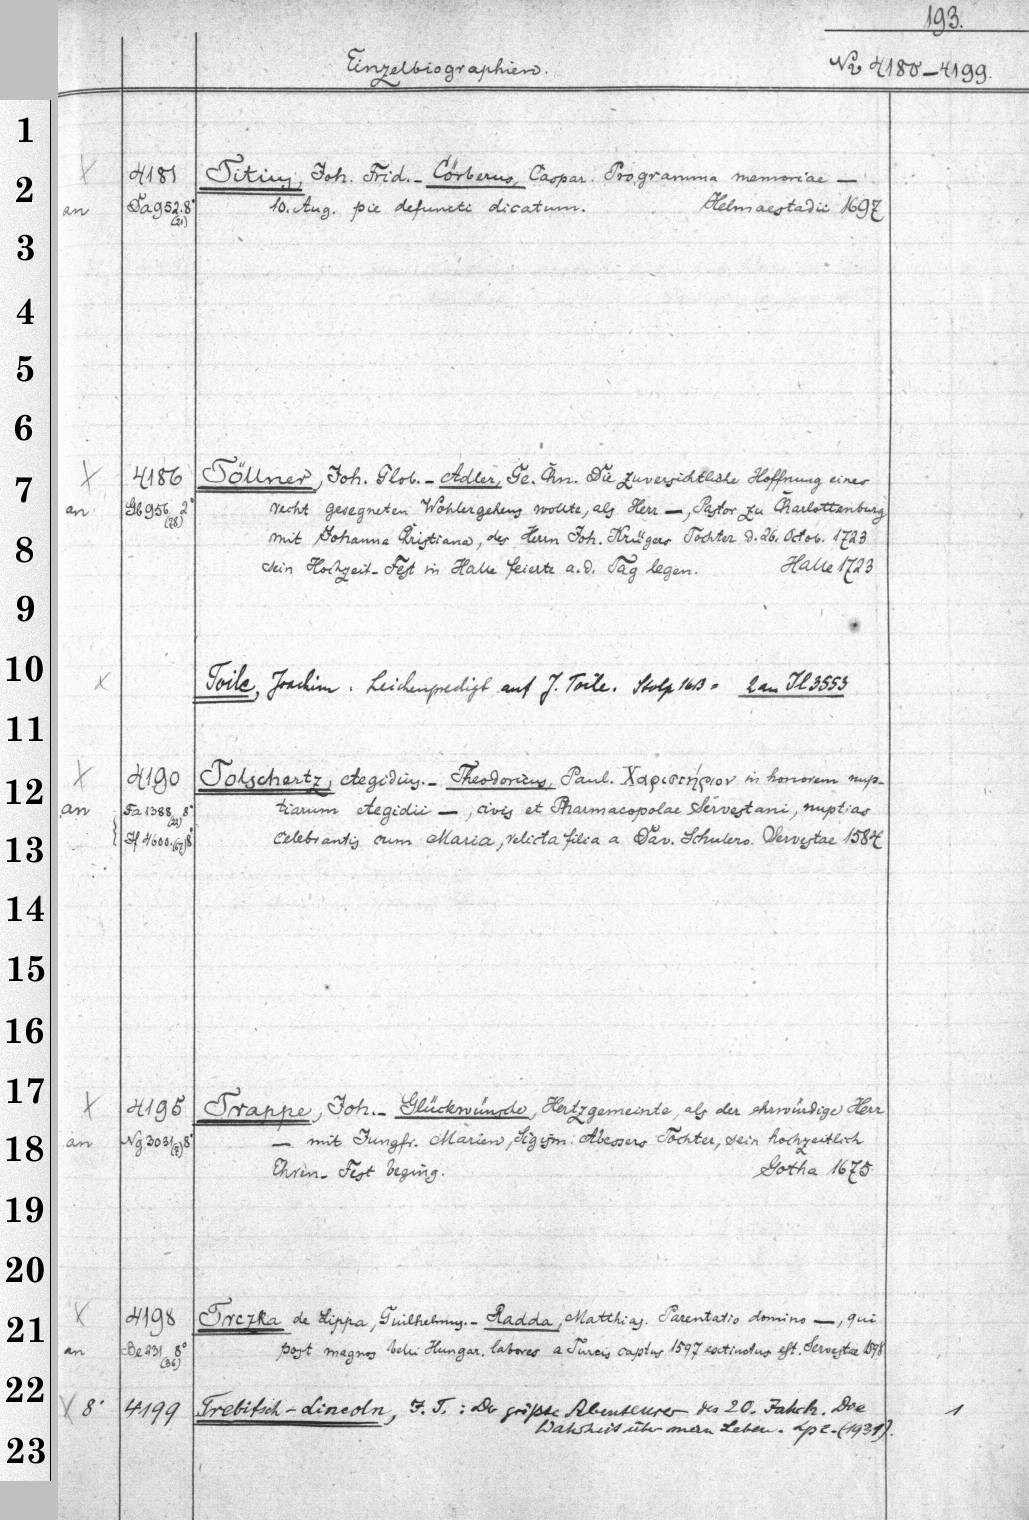 193.
Einzelbiographien.
No 4180–4199.
1
2
3
4
5
6
7
8
9
10
11
12
13
14
15
16
17
18
19
20
21
22
23
X 4181 Titius, Joh. Frid. – Cörberus, Caspar. Programma memoriae —
an Da 952.8° (21) 10. Aug. pie defuncti dicatum. Helmaestadii 1697
X 4186 Töllner, Joh. Glob. – Adler, Ge. Chn. Die zuversichtliche Hoffnung eines
an Gb 956 2° (78) recht gesegneten Wohlergehens wollte, als Herr —, Pastor zu Charlottenburg
mit Johanna Christiana, des Herrn Joh. Krügers Tochter d. 26. Octob. 1723
sein Hochzeit-Fest in Halle feierte a. d. Tag legen. Halle 1723
X Toile, Joachim. Leichenpredigt auf J. Toile. Stolp 2 an 3553
X 4190 Totschertz, Aegidius. – Theodoricus, Paul. Χαριστήριον in honorem nup-
an Fa 1388 (22) 8° tiarum Aegidii —, civis et Pharmacopolae Servestani, nuptias
4600. 8° celebrantis cum Maria, relicta filia a Dav. Schulero. Servestae 1584
X 4195 Trappe, Joh. – Glückwünsche, Hertzgemeinte, als der ehrwürdige Herr
an Ng. 3031 (7) 8° — mit Jungfr. Marien, Sigism. Abessers Tochter, sein hochzeitlich
Ehren-Fest beging. Gotha 1675
X 4198 Trczka de Lippa, Guilhelmus. – Radda, Matthias. Parentatio domino —, qui
an Be 231 8° (36) post magnos belli Hungar. labores a Turcis captus 1597 extinctus est. Servestae 1598
X 8° 4199 Trebitsch-Lincoln, J. T.: Der größte Abenteurer des 20. Jahrh. Die 1
Wahrheit über mein Leben. Lpz. (1931).